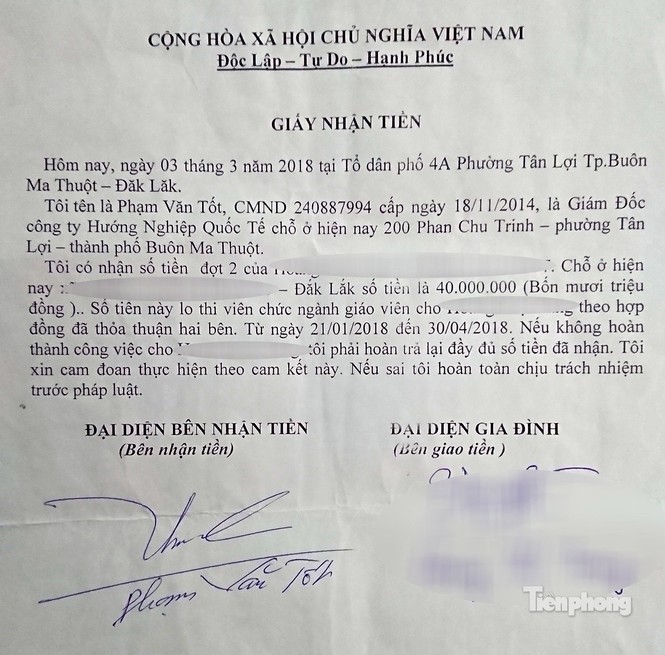 CỘNG HÒA XÃ HỘI CHỦ NGHĨA VIỆT NAM
Độc Lập – Tự Do – Hạnh Phúc
GIẤY NHẬN TIỀN
Hôm nay, ngày 03 tháng 3 năm 2018 tại Tổ dân phố 4A Phường Tân Lợi Tp.Buôn
Ma Thuột – Đăk Lăk.
Tôi tên là Phạm Văn Tốt, CMND 240887994 cấp ngày 18/11/2014, là Giám Đốc
công ty Hướng Nghiệp Quốc Tế chỗ ở hiện nay 200 Phan Chu Trinh – phường Tân
Lợi – thành phố Buôn Ma Thuột.
Tôi có nhận số tiền đợt 2 của . Chỗ ở hiện
nay : – Đăk Lắk số tiền là 40.000.000 (Bốn mươi triệu
đồng ).. Số tiền này lo thi viên chức ngành giáo viên cho theo hợp
đồng đã thỏa thuận hai bên. Từ ngày 21/01/2018 đến 30/04/2018. Nếu không hoàn
thành công việc cho tôi phải hoàn trả lại đầy đủ số tiền đã nhận. Tôi
xin cam đoan thực hiện theo cam kết này. Nếu sai tôi hoàn toàn chịu trách nhiệm
trước pháp luật.
ĐẠI DIỆN BÊN NHẬN TIỀN
(Bên nhận tiền)
ĐẠI DIỆN GIA ĐÌNH
(Bên giao tiền )
Phạm Văn Tốt
Tienphong